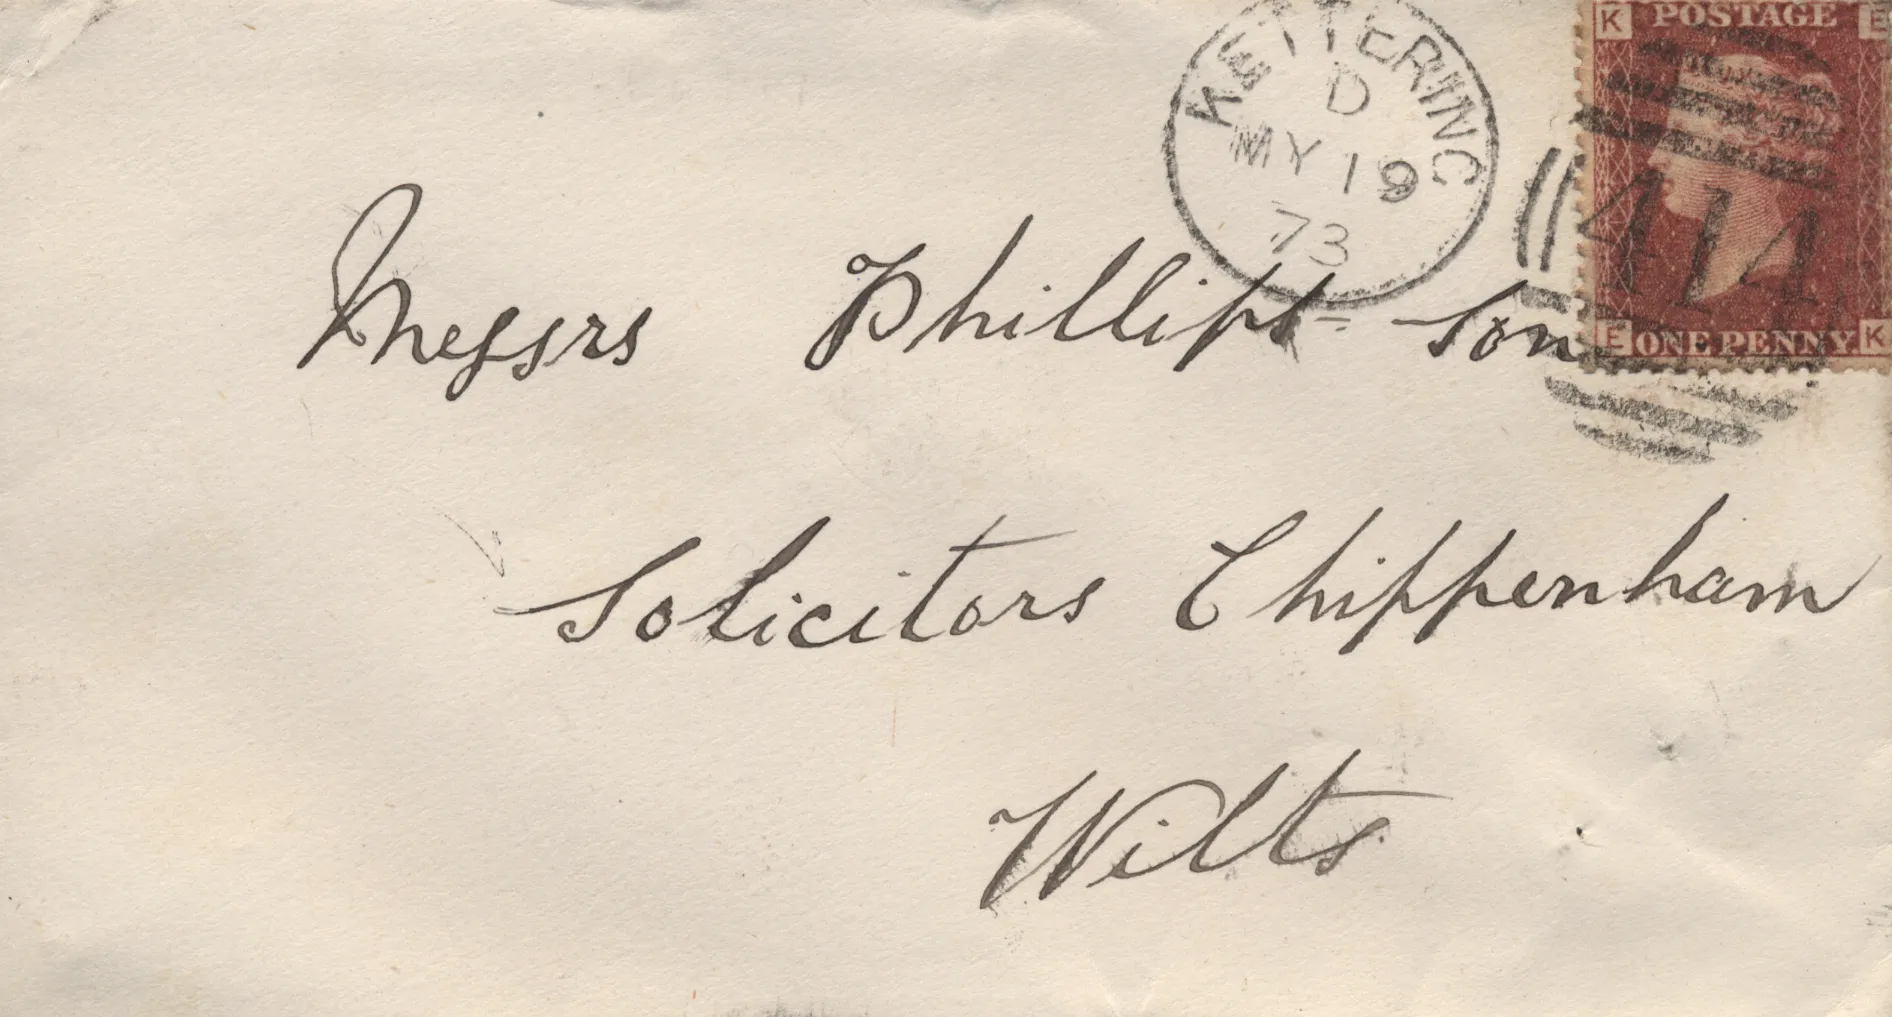 K POSTAGE E
KETTERING
D
MY 19
73
414
Messrs Phillips Son
E ONE PENNY K
Solicitors Chippenham
Wilts